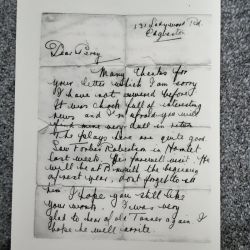 131 Ladywood Rd.
Edgbaston
Dear Percy
Many thanks for
your letter which I am sorry
I have not answered before
It was chock full of interesting
news and I'm afraid you will
find mine very dull in return
The plays here are quite good
Saw Forbes Robertson in Hamlet
last week. His farewell visit. He
will be at B'mouth the beginning
of next year. Dont forget to
him I hope you still like
your work. I was very
glad to hear of old Tanner again. I
hope he will write